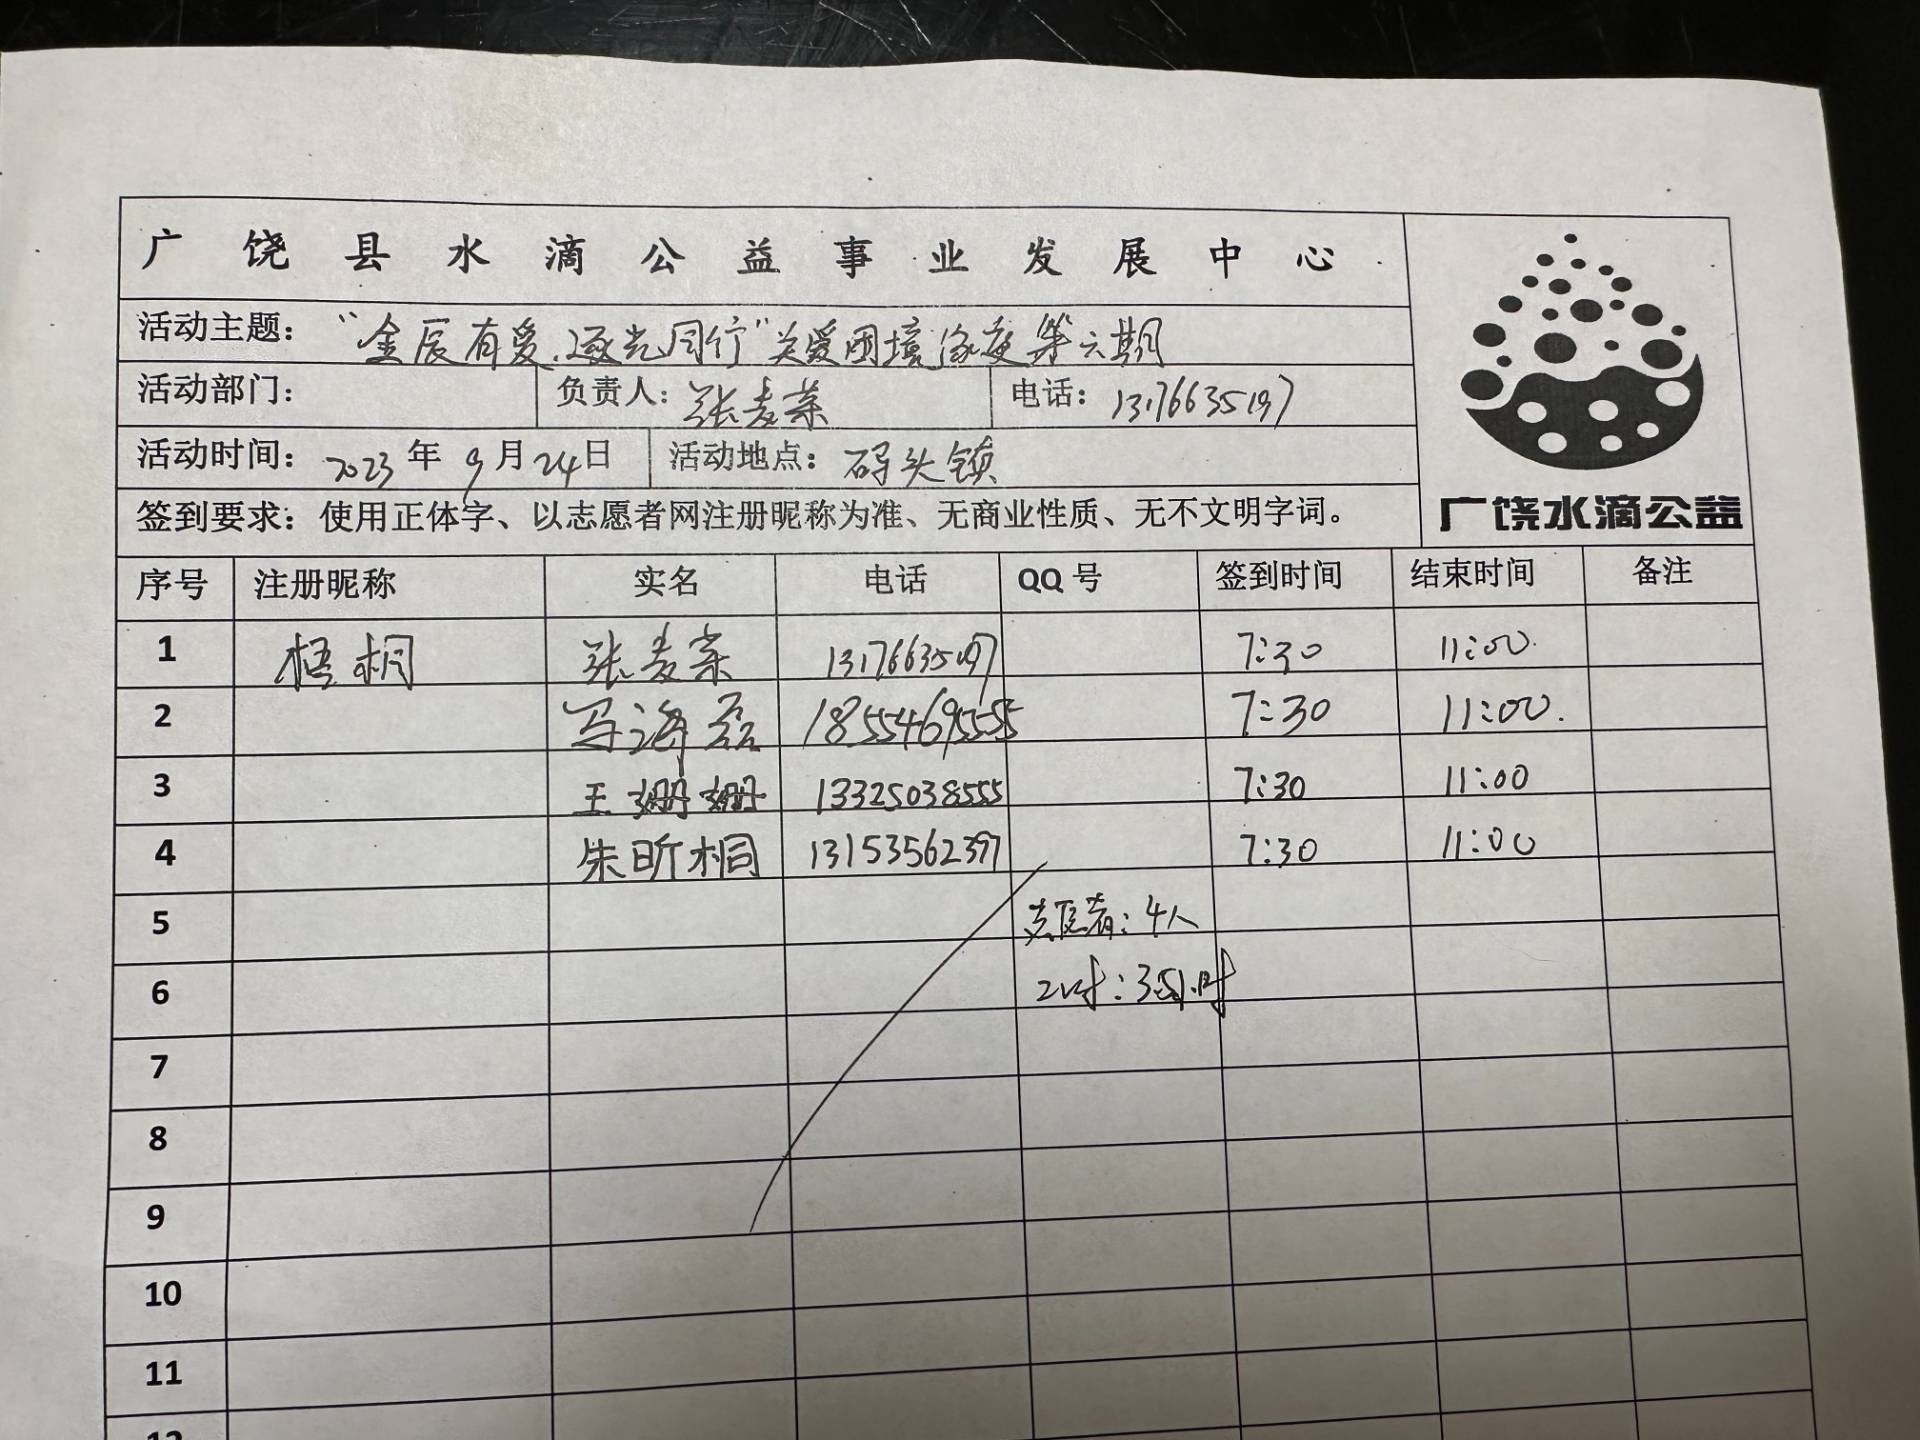 广饶县水滴公益事业发展中心
活动主题：“金辰有爱，逐光同行”关爱困境家庭第六期
活动部门： 负责人：张麦荣 电话：13176635197
活动时间：2023年9月24日 活动地点：码头镇
签到要求：使用正体字、以志愿者网注册昵称为准、无商业性质、无不文明字词。
广饶水滴公益
序号 注册昵称 实名 电话 QQ号 签到时间 结束时间 备注
1 梧桐 张麦荣 13176635197 7:30 11:00
2 马海磊 18554695555 7:30 11:00
3 王姗姗 13325038555 7:30 11:00
4 朱昕桐 13153562397 7:30 11:00
5 志愿者：4人
6 工时：3.5小时
7
8
9
10
11
12